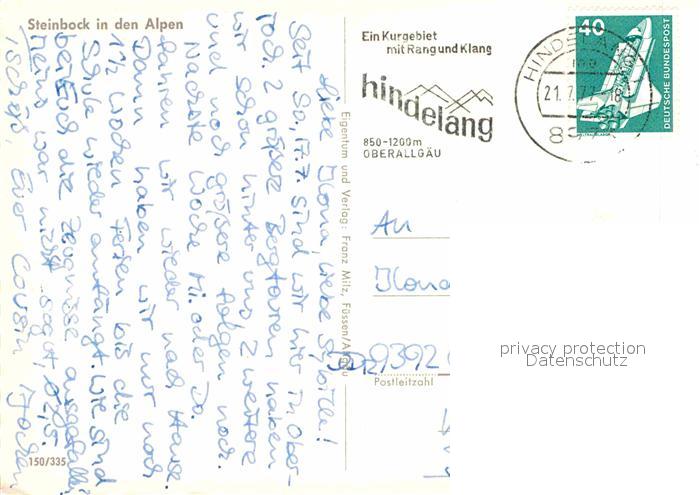 Steinbock in den Alpen
Liebe Ilona, liebe Sybille!
Seit Sa, 17.7. sind wir hier in Ober-
2 größere Bergtouren haben
wir schon hinter uns 2 weitere
und noch größere folgen noch.
Nächste Woche Mi. oder Do.
fahren wir wieder nach Hause.
Dann haben wir nur noch
1½ Wochen Ferien bis die
Schule wieder anfängt. Wie sind
bei Euch die Zeugnisse ausgefallen?
Meins war nicht
Euer Cousin Jochen
150/335
Eigentum und Verlag: Franz Milz, Füssen/Allgäu
Ein Kurgebiet
mit Rang und Klang
hindelang
850-1200m
OBERALLGÄU
HINDELA
21.7.77-18
89
40
DEUTSCHE BUNDESPOST
An
Ilona
DDR 9392
Postleitzahl
privacy protection
Datenschutz